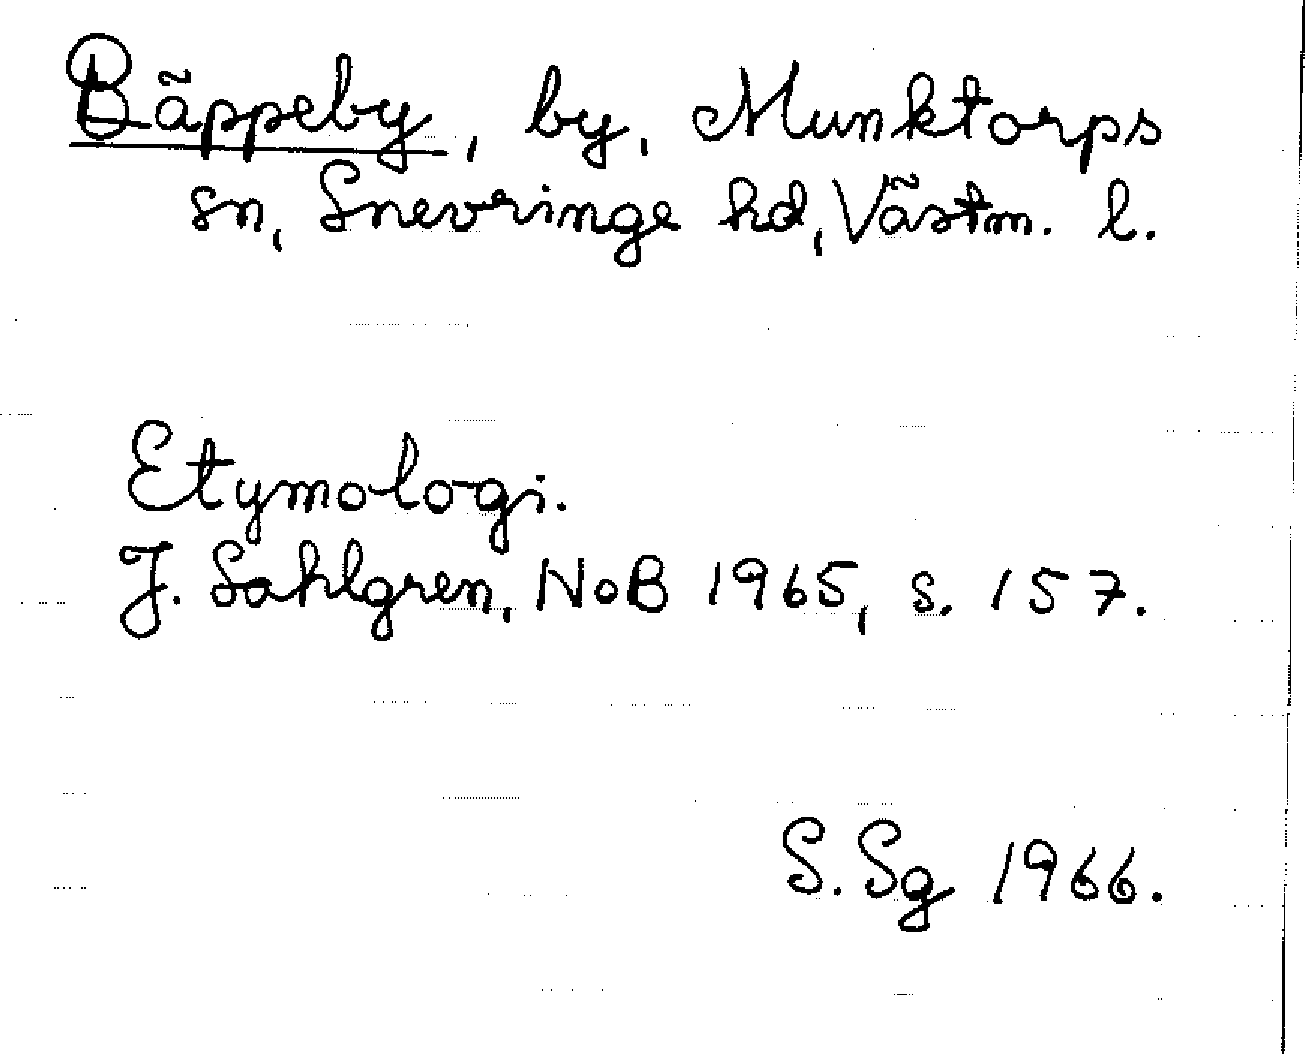 Bäppeby, by, Munktorps
sn, Snevringe hd, Västm. l.
Etymologi.
J. Sahlgren, NoB 1965, s. 157.
S. Sg 1966.